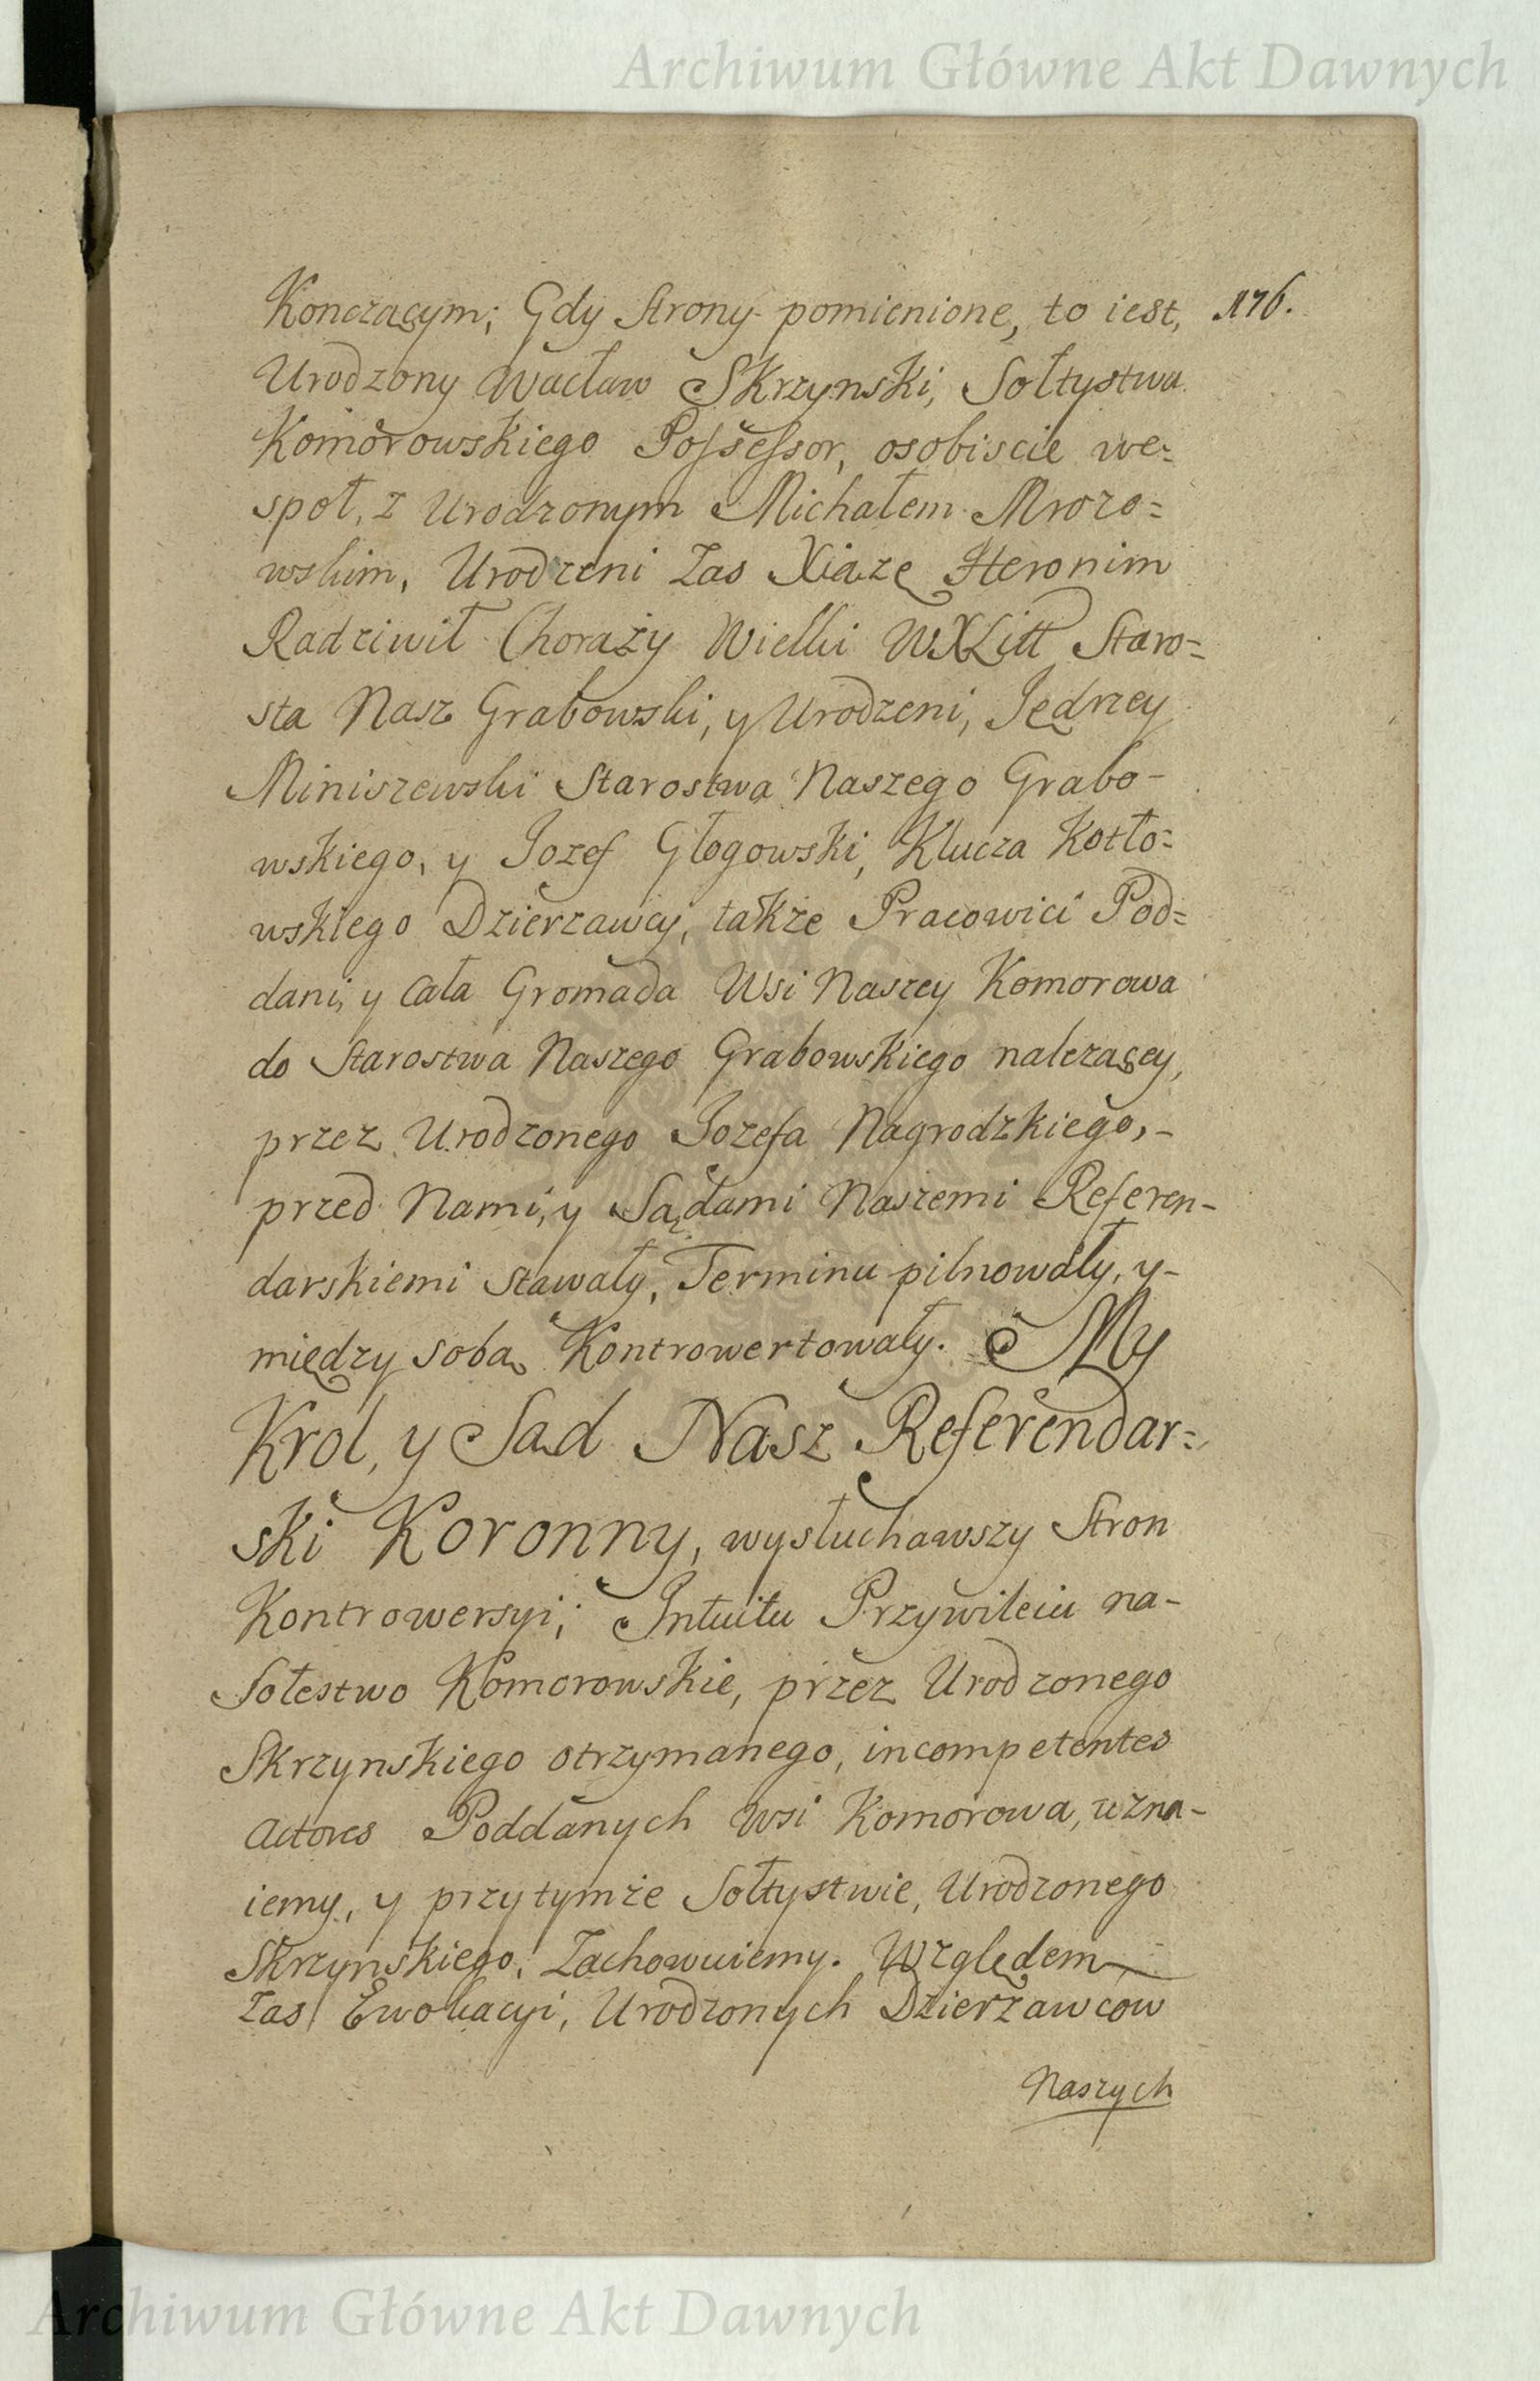 Archiwum Główne Akt Dawnych
Konczącym; Gdy Strony pomienione, to iest, 176.
Urodzony Wacław Skrzynski, Sołtystwa
Komorowskiego Possessor, osobiscie we=
społ, z Urodzonym Michałem Mrozo=
wskim, Urodzeni zas Xiąze Hieronim
Radziwił Chorąży Wielki WXLitt Staro=
sta Nasz Grabowski, y Urodzeni, Jędrzey
Miniszewski Starostwa Naszego Grabo-
wskiego, y Jozef Głogowski, Klucza Kotło=
wskiego Dzierzawcy, także Pracowici Pod=
dani, y Cała Gromada Wsi Naszey Komorowa
do Starostwa Naszego Grabowskiego nalezącey,
przez Urodzonego Jozefa Nagrodzkiego,-
przed Nami, y Sądami Naszemi Referen-
darskiemi Stawały, Terminu pilnowały, y-
między sobą Kontrowertowały. My
Krol, y Sąd Nasz Referendar=
ski Koronny, wysłuchawszy Stron
Kontrowersyi; Intuitu Przywileiu na-
Sołestwo Komorowskie, przez Urodzonego
Skrzynskiego otrzymanego, incompetentes
Actores Poddanych Wsi Komorowa, uzna-
iemy, y przytymże Sołtystwie, Urodzonego
Skrzynskiego, Zachowuiemy. Względem
zas Ewokacyi, Urodzonych Dzierżawcow
Naszych
Archiwum Główne Akt Dawnych